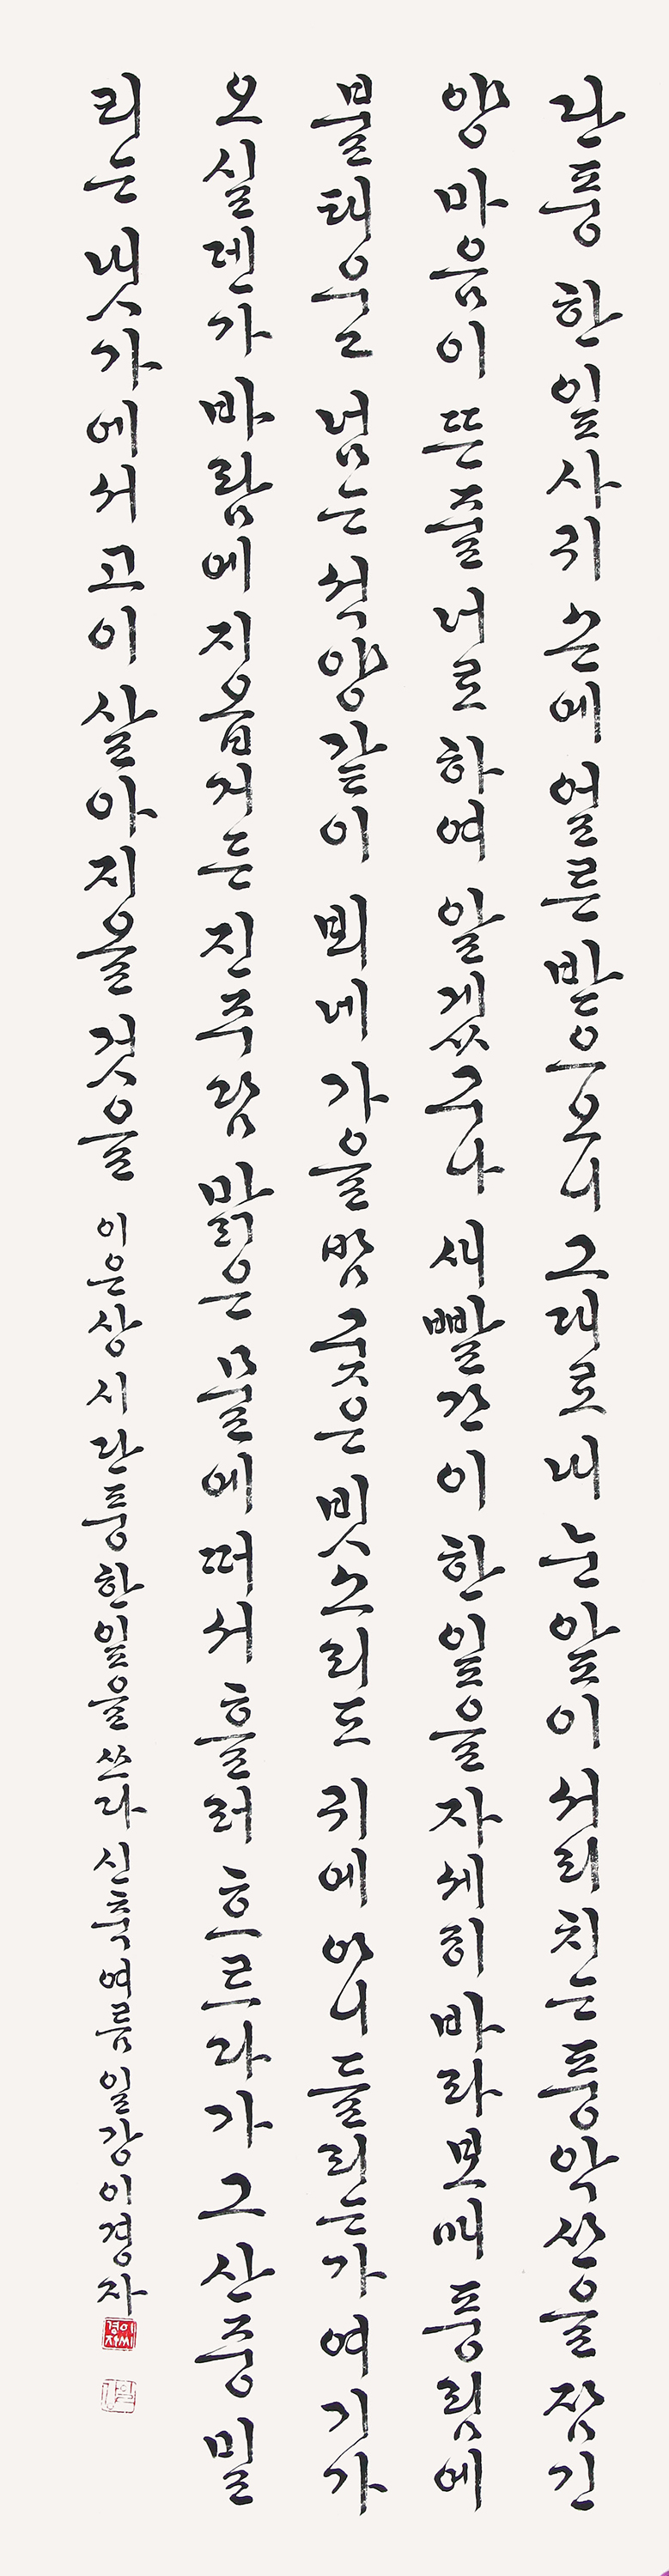 단풍 한 잎사귀 손에 얼른 받으오니 그대로 내 눈 앞이 서리치는 풍악산을 잠긴
양 마음이 뜬 줄 너로 하여 알겠구나 새빨간 이 한 잎을 자세히 바라보매 풍림에
불태우고 넘는 석양같이 뵈네 가을밤 궂은 빗소리도 귀에 아니 들리는가 여기가
오실덴가 바람에 지옵거든 진주담 맑은 물에 떠서 흘러 흐르다가 그 산중 밀
리는 냇가에서 고이 살아지올 것을
이은상 시 단풍 한 잎을 쓰다 신축 여름 일강 이경자